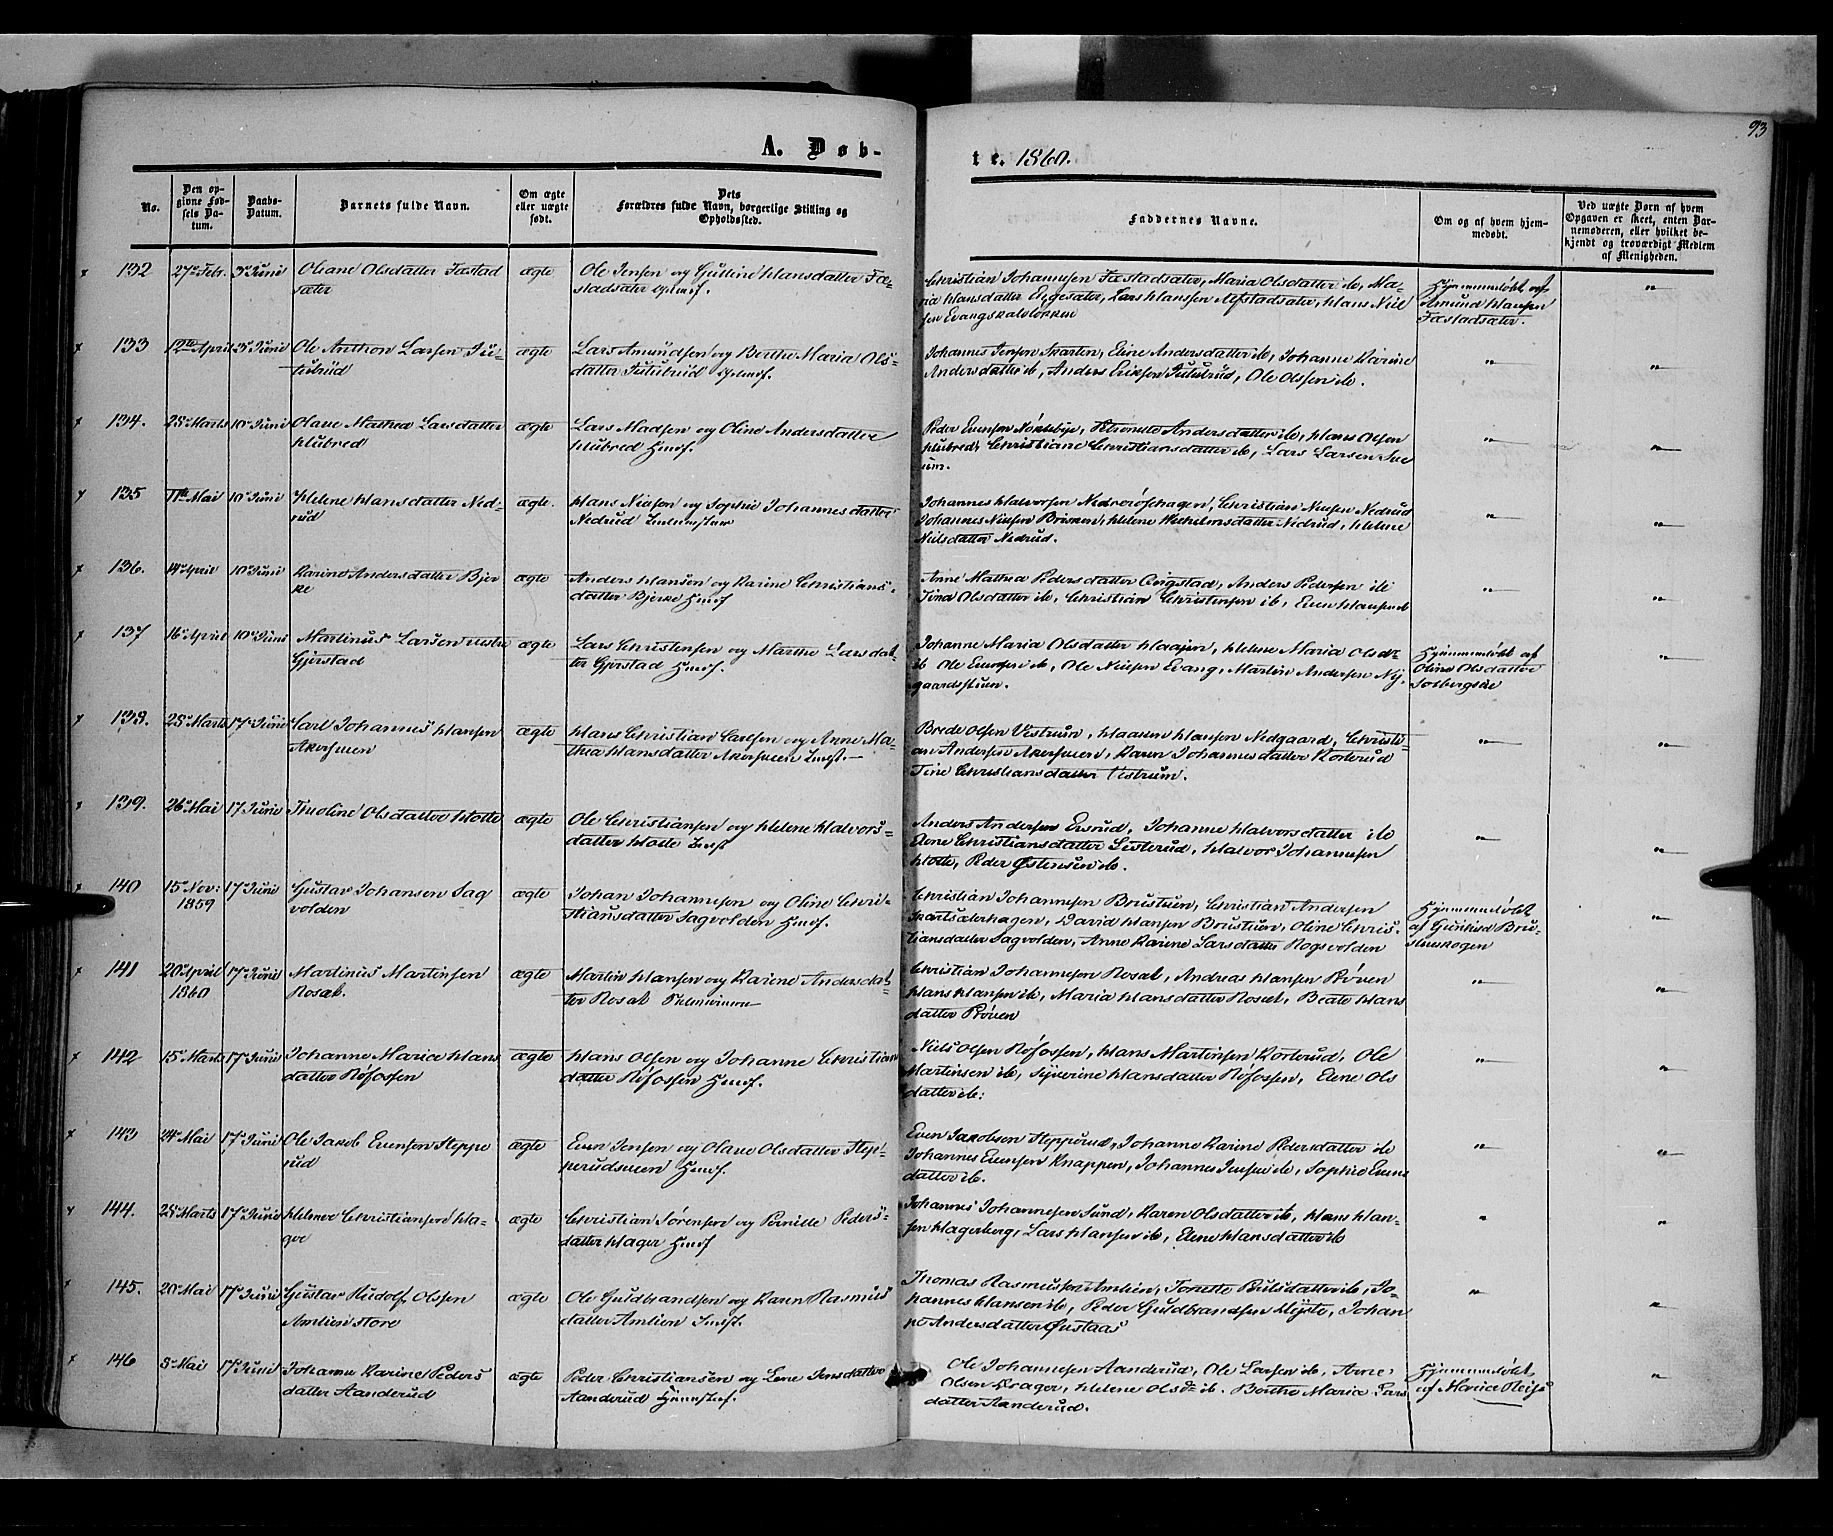 93
A. Døb-
te. 1860.
No.
Den op-
givne Fød-
sels Da-
tum.
Daabs-
Datum.
Barnets fulde Navn.
Om ægte
eller uægte
født.
Dets
Forældres fulde Navn, borgerlige Stilling og
Opholdssted.
Faddernes Navne.
Om og af hvem hjem-
medøbt.
Ved uægte Børn af hvem
Opgaven er skeet, enten Bar-
nemoderen, eller hvilket be-
kjendt og troværdigt Medlem
af Menigheden.
132 27de Febr. 3de Juni Oliane Olsdatter Fæstad
sæter
ægte
Ole Jensen og Gulline Hansdatter Fæ-
stadsæter
Christian Johannesen Fæstadsæter, Maria Olsdatter ib, Ma-
ria Hansdatter Eggesæter, Lars Hanssen Afstadsæter, Hans Niel
sen Evangskalvløkken
Hjemmedøbt af
Amund Hansen
Fæstadsæter.
133 12te April 3de Juni Ole Anthon Larsen Tu-
tubrud
ægte
Lars Amundsen og Berthe Maria Ols-
datter Tutubrud
Johannes Jensen Skarten, Eline Andersdatter ib, Johanne Karine
Andersdatter ib, Anders Eriksen Tutubrud, Ole Olssen ib.
134. 28de Marts 10de Juni Olave Mathea Larsdatter
Hubred
ægte
Lars Madsen og Oline Andersdatter
Hubred Huusf.
Peder Evensen Nøkleby, Petronelle Andersdatter ib, Hans Olsen
Hubred, Christiane Christiansdatter ib, Lars Larsen
135 11te Mai 10de Juni Helene Hansdatter Ned-
rud
ægte.
Hans Nielsen og Sophie Johannesdatter
Nedrud
Johannes Halvorsen Nedrerøishagen, Christian Nielsen Nedrud
Johannes Nielsen Brennen, Helene Wilhelmsdatter Nedrud, Helene
Nielsdatter Nedrud.
136. 14de April 10de Juni Karine Andersdatter Bjer
ke
ægte
Anders Hansen og Karine Christians-
datter Bjerke Huusf
Anne Mathea Pedersdatter Ongstad, Anders Pedersen ib
Tina Olsdatter ib, Christian Christensen ib, Even Hansen ib
137 16de April 10de Juni Martinus Larsen
Gjerstad
ægte
Lars Christensen og Marthe Larsdat-
ter Gjerstad Huusf.
Johanne Maria Olsdatter Haajen, Helene Maria Olsdr
ib Ole Evensen ib, Ole Nielsen Evang, Martin Andersen Ny-
gaardsstuen.
Hjemmedøbt af
Oline Olsdatter
138. 28de Marts 17de Juni Carl Johannes Hansen
Akershuen
ægte
Hans Christian Carlsen og Anne Ma-
thea Hansdatter Akershuen
Brede Olsen Vestrum, Haaken Hansen Nedgaard, Christi-
an Andersen Akershuen, Karen Johannesdatter Korterud
Tine Christiansdatter Vestrum.
139. 26de Mai 17 Juni Theoline Olsdatter Holte
ægte
Ole Christiansen og Helene Halvors-
datter Holte
Anders Andersen Ensrud, Johanne Halvorsdatter ib
Elene Christiansdatter Sisterud, Halvor Johannesen
Holte, Peder Østensen ib.
140 15de Nov:
1859
17de Juni Gustav Johansen Sag
volden
ægte
Johan Johannesen og Oline Chri-
stiansdatter Sagvolden Huusf.
Christian Johannesen Brustuen, Christian Andersen
Skartsæterhagen, David Hansen Brustuen, Oline Chris-
tiansdatter Sagvolden, Anne Karine Larsdatter Rogsvolden
Hjemmedøbt
af Gunhild Bru-
stueskogen
141 20de April
1860
17de Juni Martinus Martinsen
Rosæt.
ægte
Martin Hansen og Karine Andersdat
ter Rosæt
Christian Johannesen Rosæt, Andreas Hansen Prøven
Hans Hansen ib, Maria Hansdatter Rosæt, Beate Hans
datter Prøven
142 15de Marts 17de Juni Johanne Marie Hans
datter Røfossen
ægte
Hans Olsen og Johanne Christian
datter Røfossen Huusf.
Niels Olsen Røfossen, Hans Martinsen Korterud, Ole
Martinsen ib, Syverine Hansdatter Røfossen, Elene Ols
datter ib.
143 24de Mai 17de Juni Ole Jakob Evensen Steppe
rud
ægte
Even Jensen og Olave Olsdatter Step-
perudsveen Huusf.
Even Jakobsen Stepperud, Johanne Karine Pedersdatter ib
Johannes Evensen Knappen, Johannes Jensen ib, Sophie Evens
datter ib.
144. 28de Marts 17de Juni Helmer Christiansen Ha-
ger
ægte
Christian Sørensen og Pernille Peders-
datter Hager Huusf
Johannes Johannesen Sund, Karen Olsdatter ib, Hans Han-
sen Hagerberg, Lars Hansen ib, Elene Hansdatter ib
145. 20de Mai 17de Juni Gustav Rudolf Olssen
Amlien store
ægte
Ole Guldbrandsen og Karen Rasmus
datter Amlien
Thomas Rasmussen Amlien, Tonette ib, Jo-
hannes Hansen ib, Peder Guldbrandsen Myste, Johan
ne Andersdatter Øustaas
146 3de Mai 17de Juni Johanne Karine Peders
datter Aanderud
ægte
Peder Christiansen og Lene Jensdatter
Aanderud
Ole Johannesen Aanderud, Ole Larsen ib, Arne
Olsen Krager, Helene Olsdr ib. Berthe Maria Lars
datter Aanderud.
Hjemmedøbt
af Marie Reise